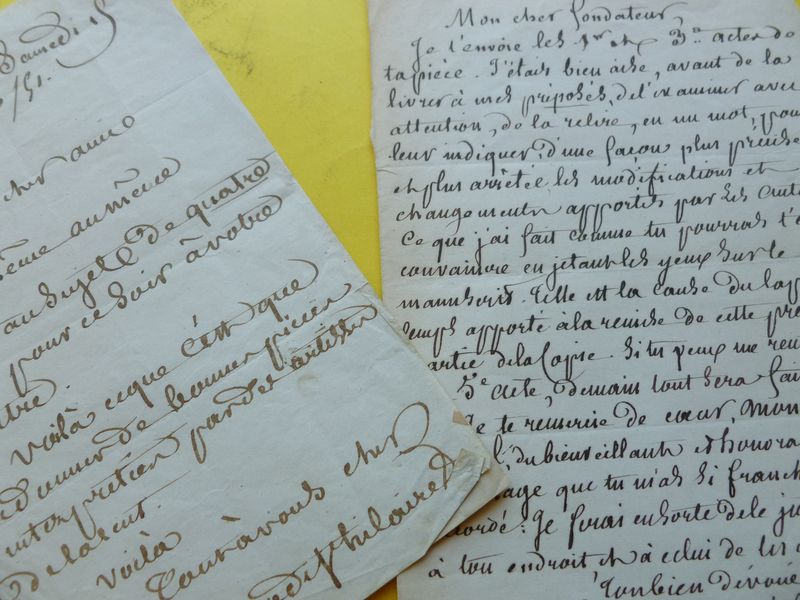 Samedi 15
/51.
cher ami
même au même
au sujet de quatre
pour ce soir à votre
Voilà ce que c'est que
donner de bonnes pièces
interprétées par des artistes
de talent.
Voilà
Tout à vous cher
St hilaire
Mon cher fondateur,
Je t'envoie les 1er et 3e actes de
ta pièce. J'étais bien aise, avant de la
livrer à mes préposés, de l'examiner avec
attention, de la relire, en un mot, pour
leur indiquer, d'une façon plus précise
et plus arrêtée, les modifications et
changements apportés par les
Ce que j'ai fait comme tu pourras t'
convaincre en jetant les yeux sur le
manuscrit. Telle est la cause du
temps apporté à la remise de cette
partie de la Copie. Si tu peux me
5e acte, demain tout sera
Je te remercie de cœur, Mon
du bienveillant et
que tu m'as si
: Je ferai en sorte de le
à ton endroit et à celui de
Ton bien dévoué